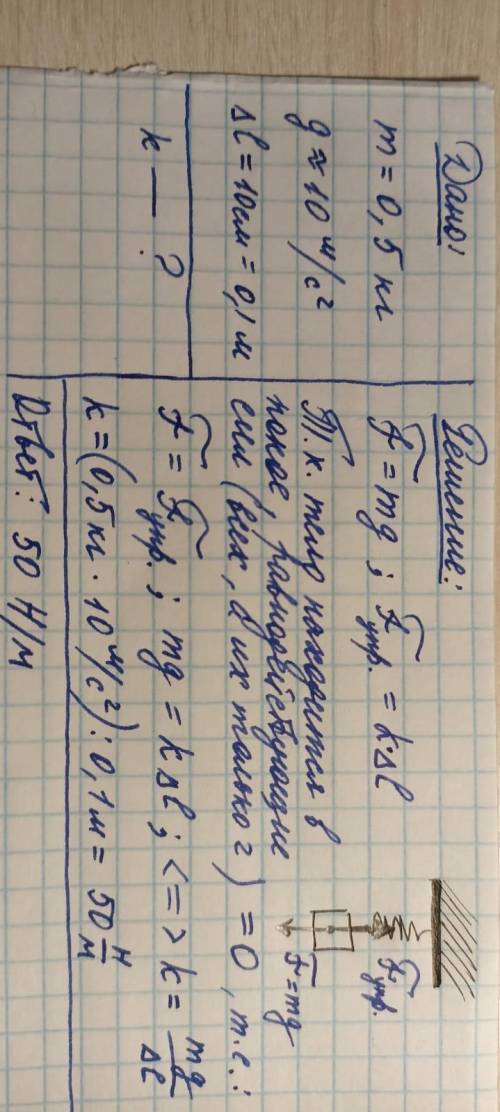 Дано:
m = 0,5 кг
g ≈ 10 м/с²
Δl = 10см = 0,1 м
k — ?
Решение:
F = mg ; Fупр. = k·Δl
Т.к. тело находится в
покое, равнодействующие
сил (всех, а их только 2) = 0, т.е.:
F = Fупр. ; mg = kΔl ; <=> k = mg/Δl
k = (0,5 кг · 10 м/с²) : 0,1 м = 50 Н/м
Ответ: 50 Н/м
Fупр.
F = mg